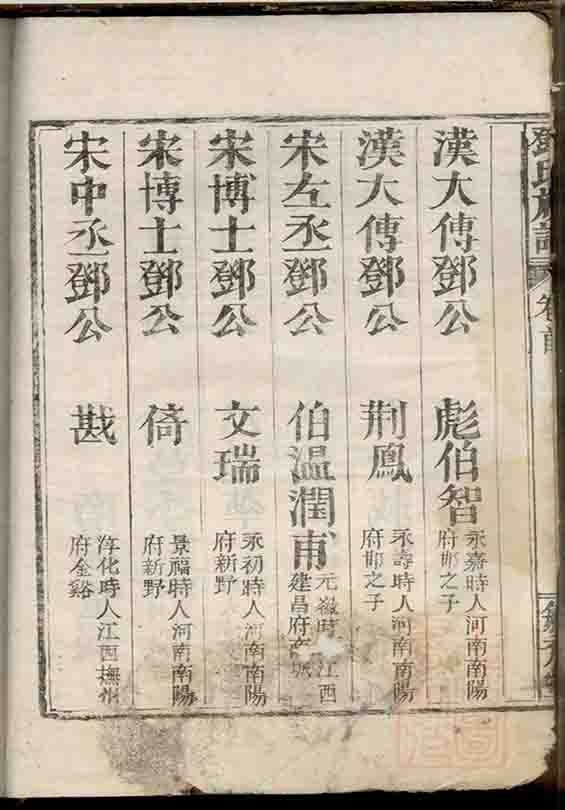 鄧氏族譜
卷首
漢大傳鄧公 彪伯智 永嘉時人河南南陽
府邯之子
漢大傳鄧公 荆鳳 永壽時人河南南陽
府邯之子
宋左丞鄧公 伯溫潤甫 元 時 江西
建昌府 城
宋博士鄧公 文瑞 永初時人河南南陽
府新野
宋博士鄧公 倚 景福時人河南南陽
府新野
宋中丞鄧公 戡 淳化時人江西撫州
府金谿